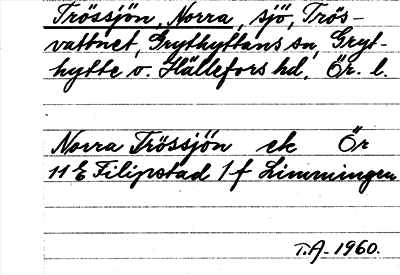 Trössjön, Norra, sjö, Trös-
vattnet, Grythyttans sn, Gryt-
hytte o. Hällefors hd, Ör. l.
Norra Trössjön ek Ör
11 E Filipstad 1 f Limmingen
T.A- 1960.